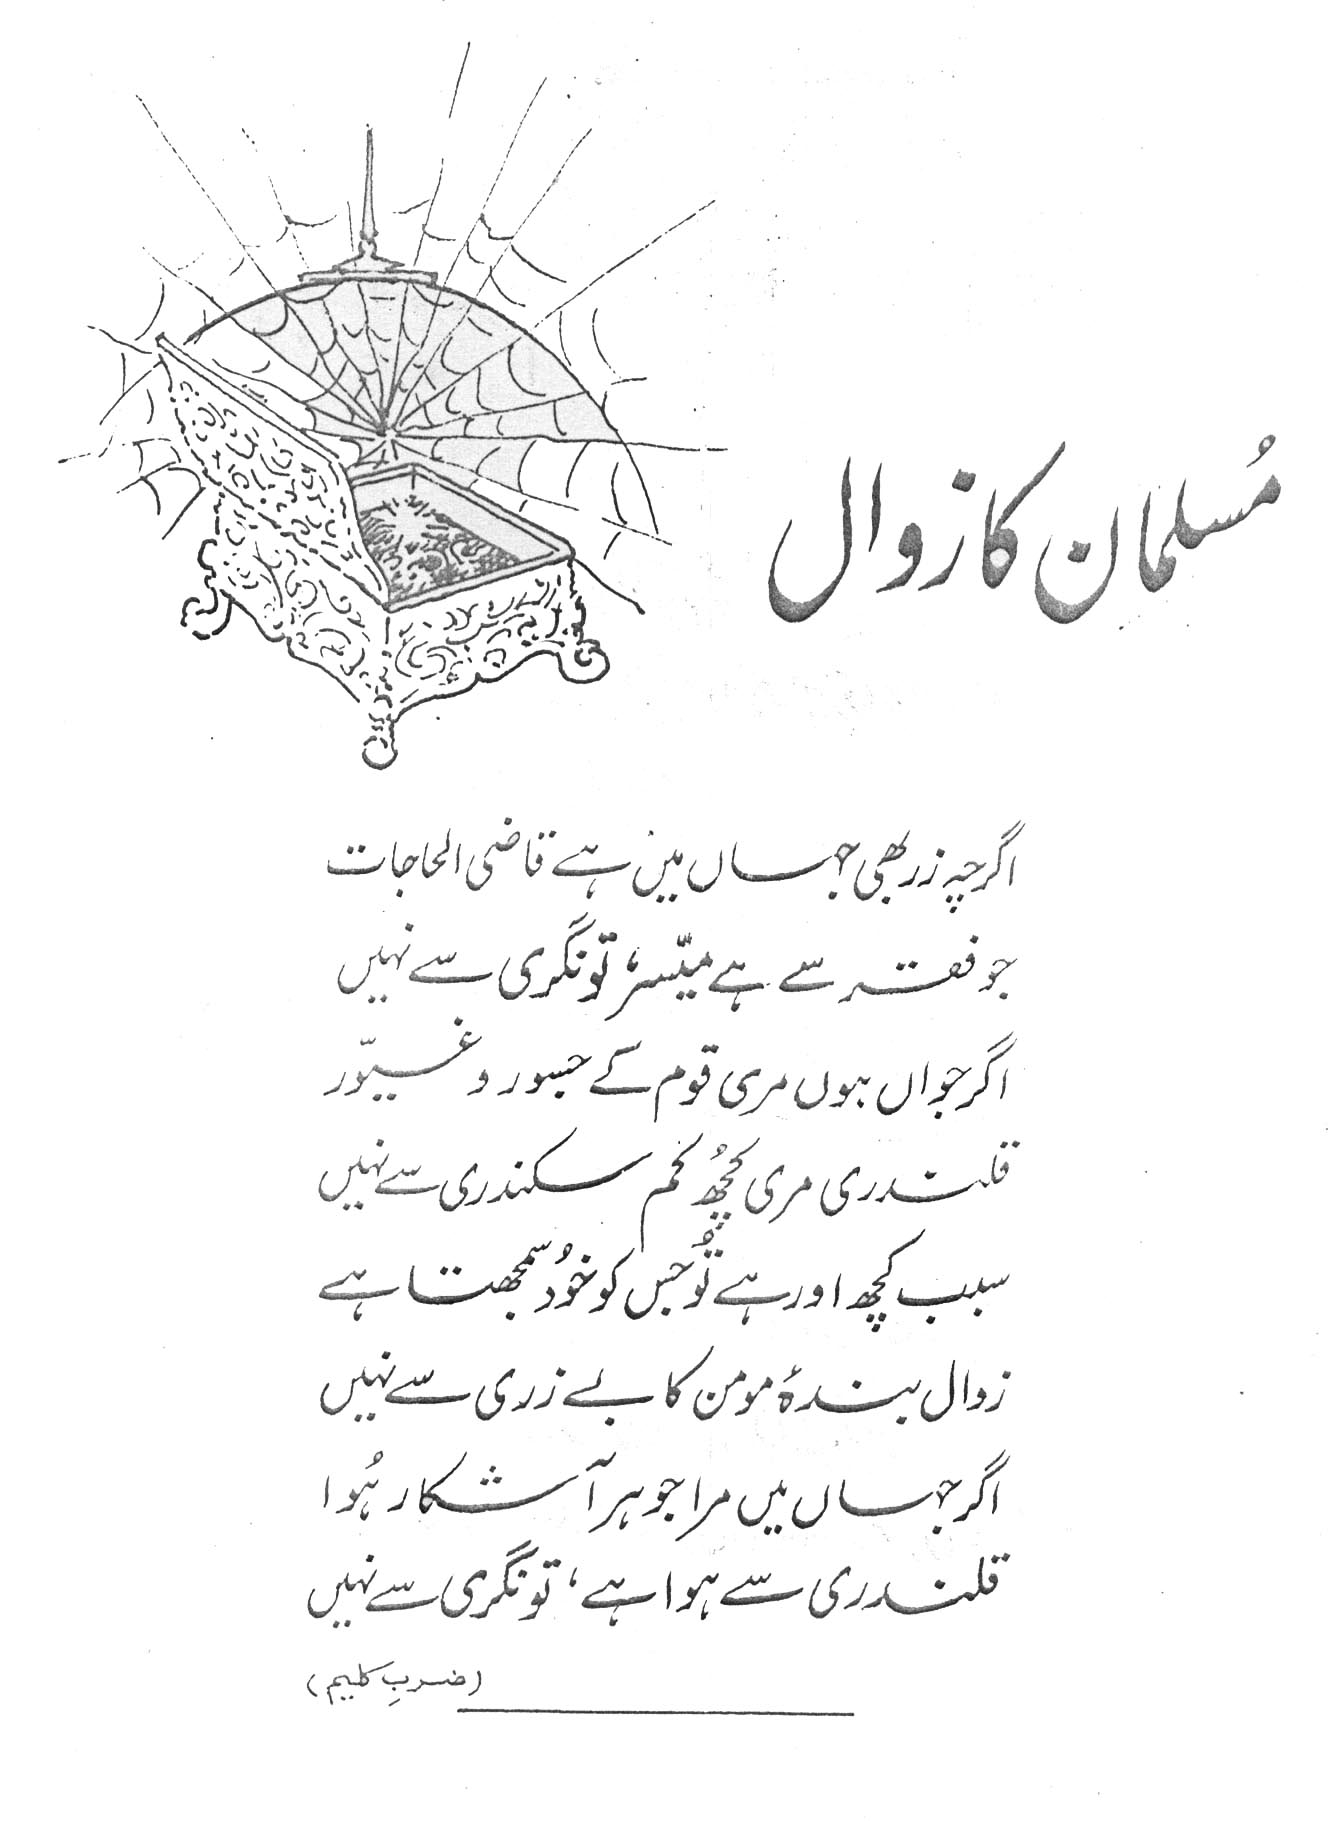 مُسلمان کا زوال
اگرچہ زر بھی جہاں میں ہے قاضی الحاجات
جو فقر سے ہے میسّر، تونگری سے نہیں
اگر جواں ہوں مری قوم کے جسور و غیّور
قلندری مری کچھ کم سکندری سے نہیں
سبب کچھ اور ہے تُو جس کو خُود سمجھتا ہے
زوال بندۂ مومن کا بے زری سے نہیں
اگر جہاں میں مرا جوہر آشکار ہُوا
قلندری سے ہوا ہے، تونگری سے نہیں
(ضربِ کلیم)